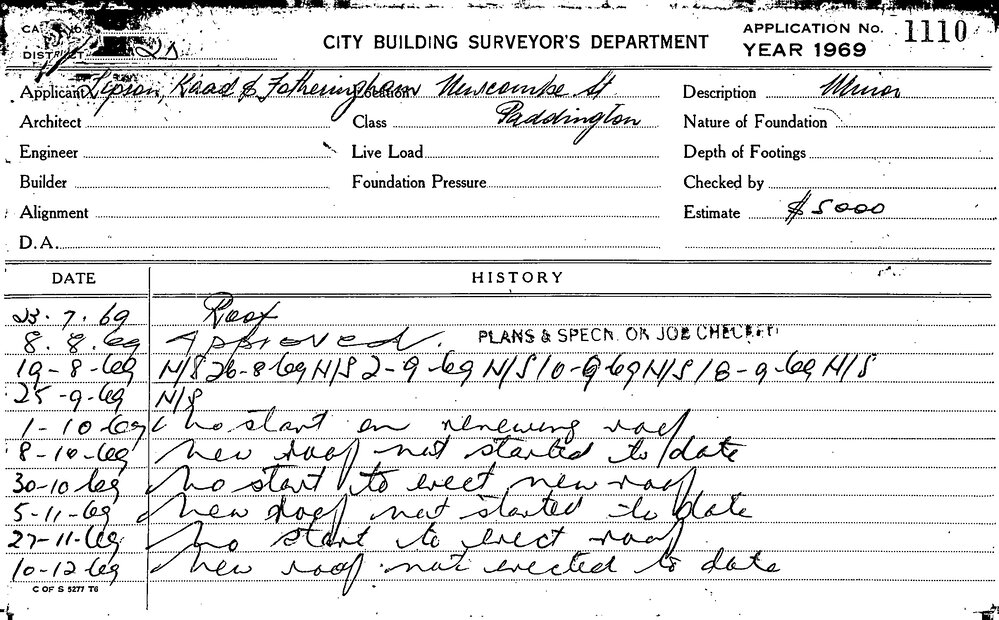 CITY BUILDING SURVEYOR'S DEPARTMENT
APPLICATION No. 1110
YEAR 1969
DISTRICT
Applicant Lipson, Kaad & Fotheringham Location Newcombe St
Paddington
Description Minor
Architect
Class
Nature of Foundation
Engineer
Live Load
Depth of Footings
Builder
Foundation Pressure
Checked by
Alignment
Estimate $5000
D.A.
DATE HISTORY
23.7.69 Roof
8.8.69 Approved. PLANS & SPECN. ON JOB CHECKED
19-8-69 N/S 26-8-69 N/S 2-9-69 N/S 10-9-69 N/S 18-9-69 N/S
25-9-69 N/S
1-10-69 no start on renewing roof
8-10-69 new roof not started to date
30-10-69 No start to erect new roof
5-11-69 New roof not started to date
27-11-69 No start to erect roof
10-12-69 New roof not erected to date
C OF S 5277 T6